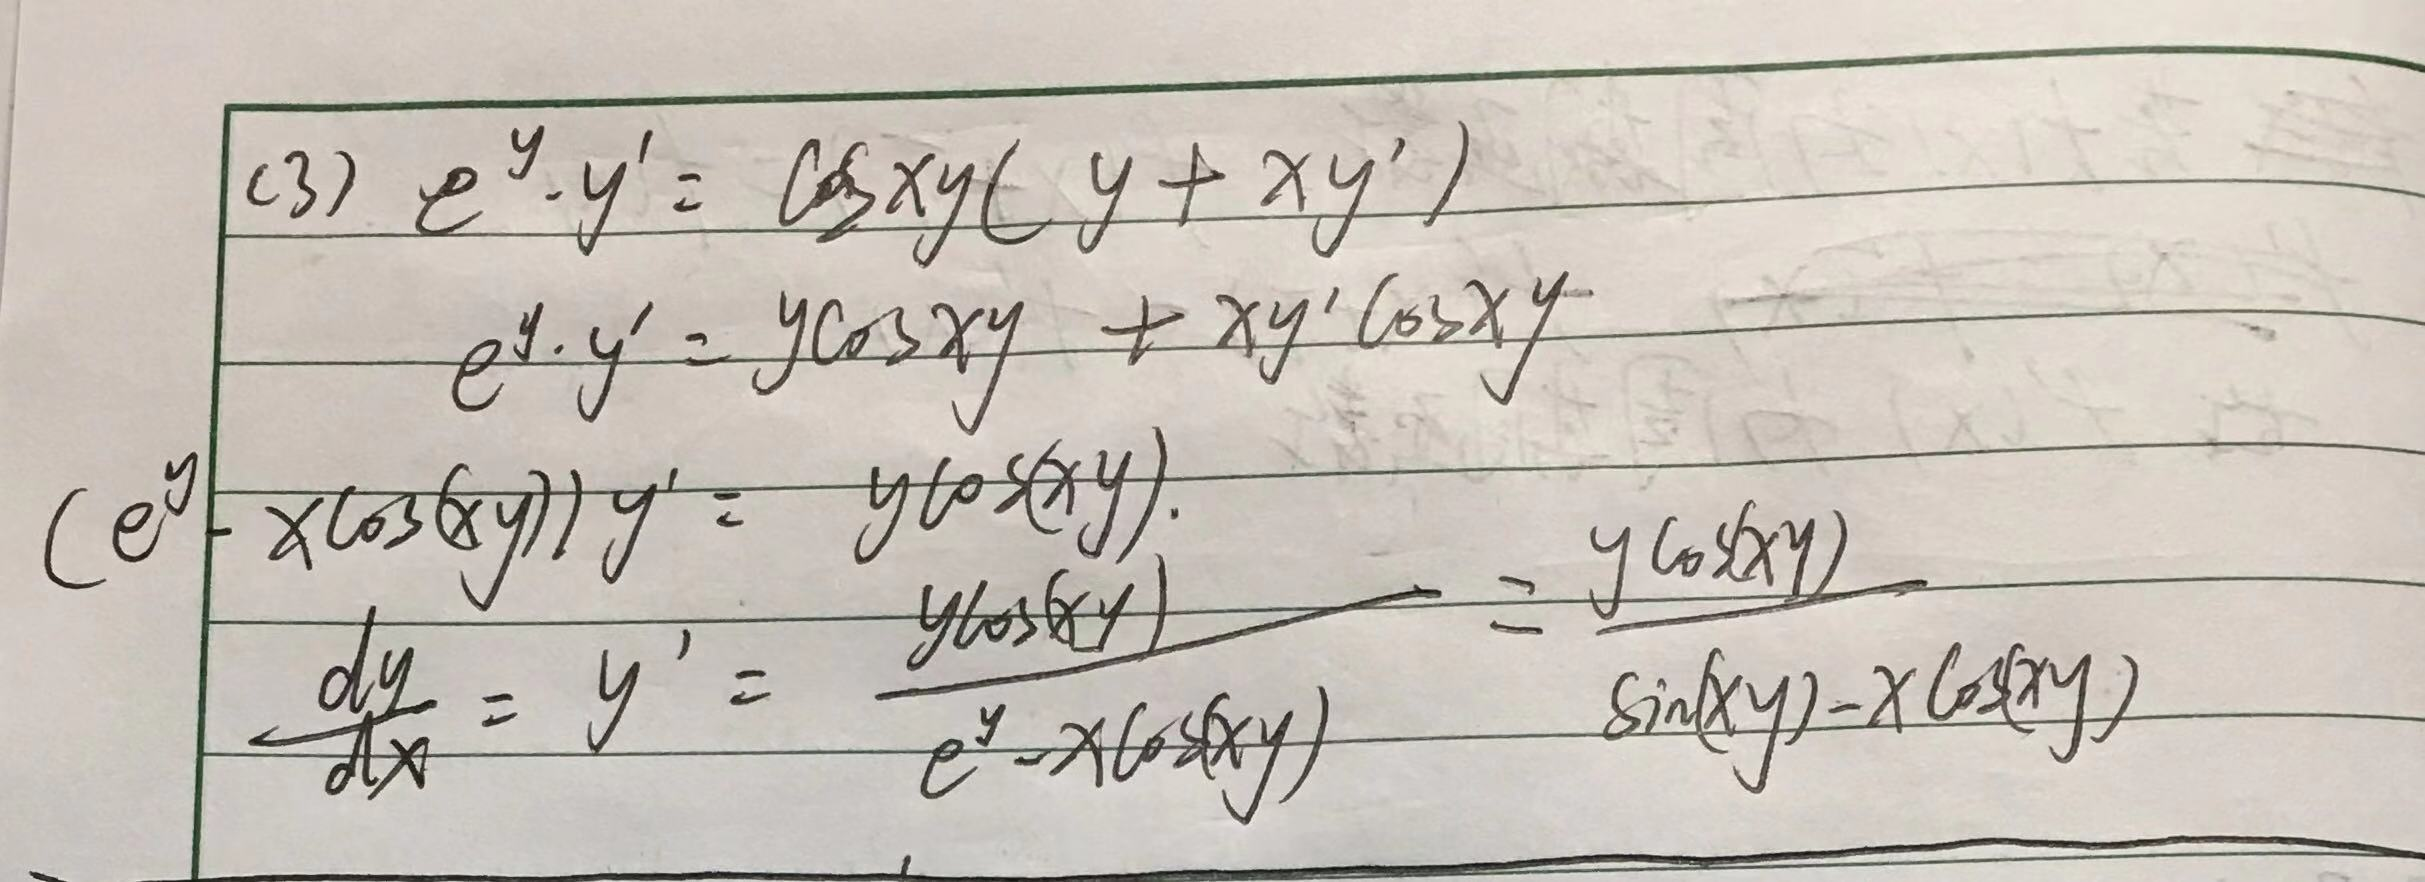 (3) e^y · y' = cos xy ( y + xy' )
e^y · y' = y cos xy + xy' cos xy
(e^y - x cos(xy)) y' = y cos(xy).
dy/dx = y' = y cos(xy) / e^y - x cos(xy) = y cos(xy) / sin(xy) - x cos(xy)